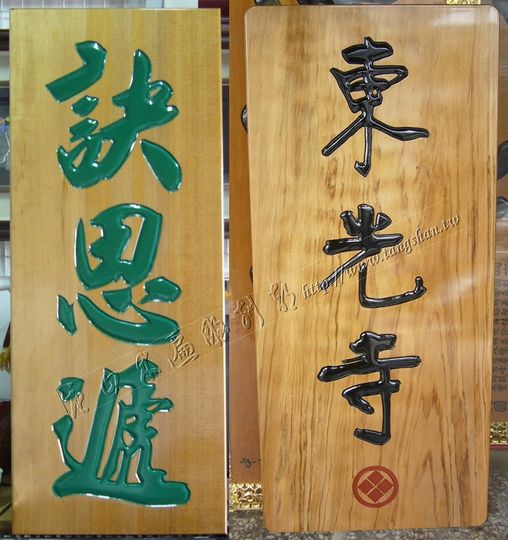 訣恩遞
東光寺
http://www.tangshan.tw